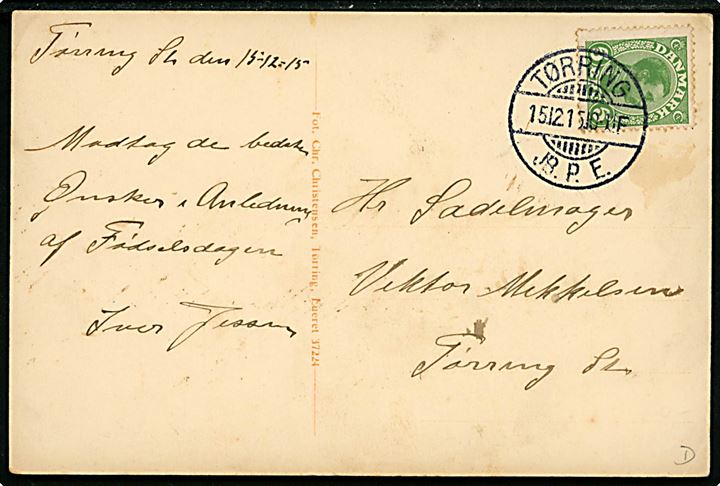 Tørring St. den 15-12-15
Modtag de bedste
Ønsker i Anledning
af Fødselsdagen
Iver Jessen
Fot. Chr. Christensen, Tørring, Eneret 37224
DANMARK
5 5
TØRRING
15.12.15.8
JB. P. E.
Hr Sadelmager
Vektor Mekkelsen
Tørring St.
D